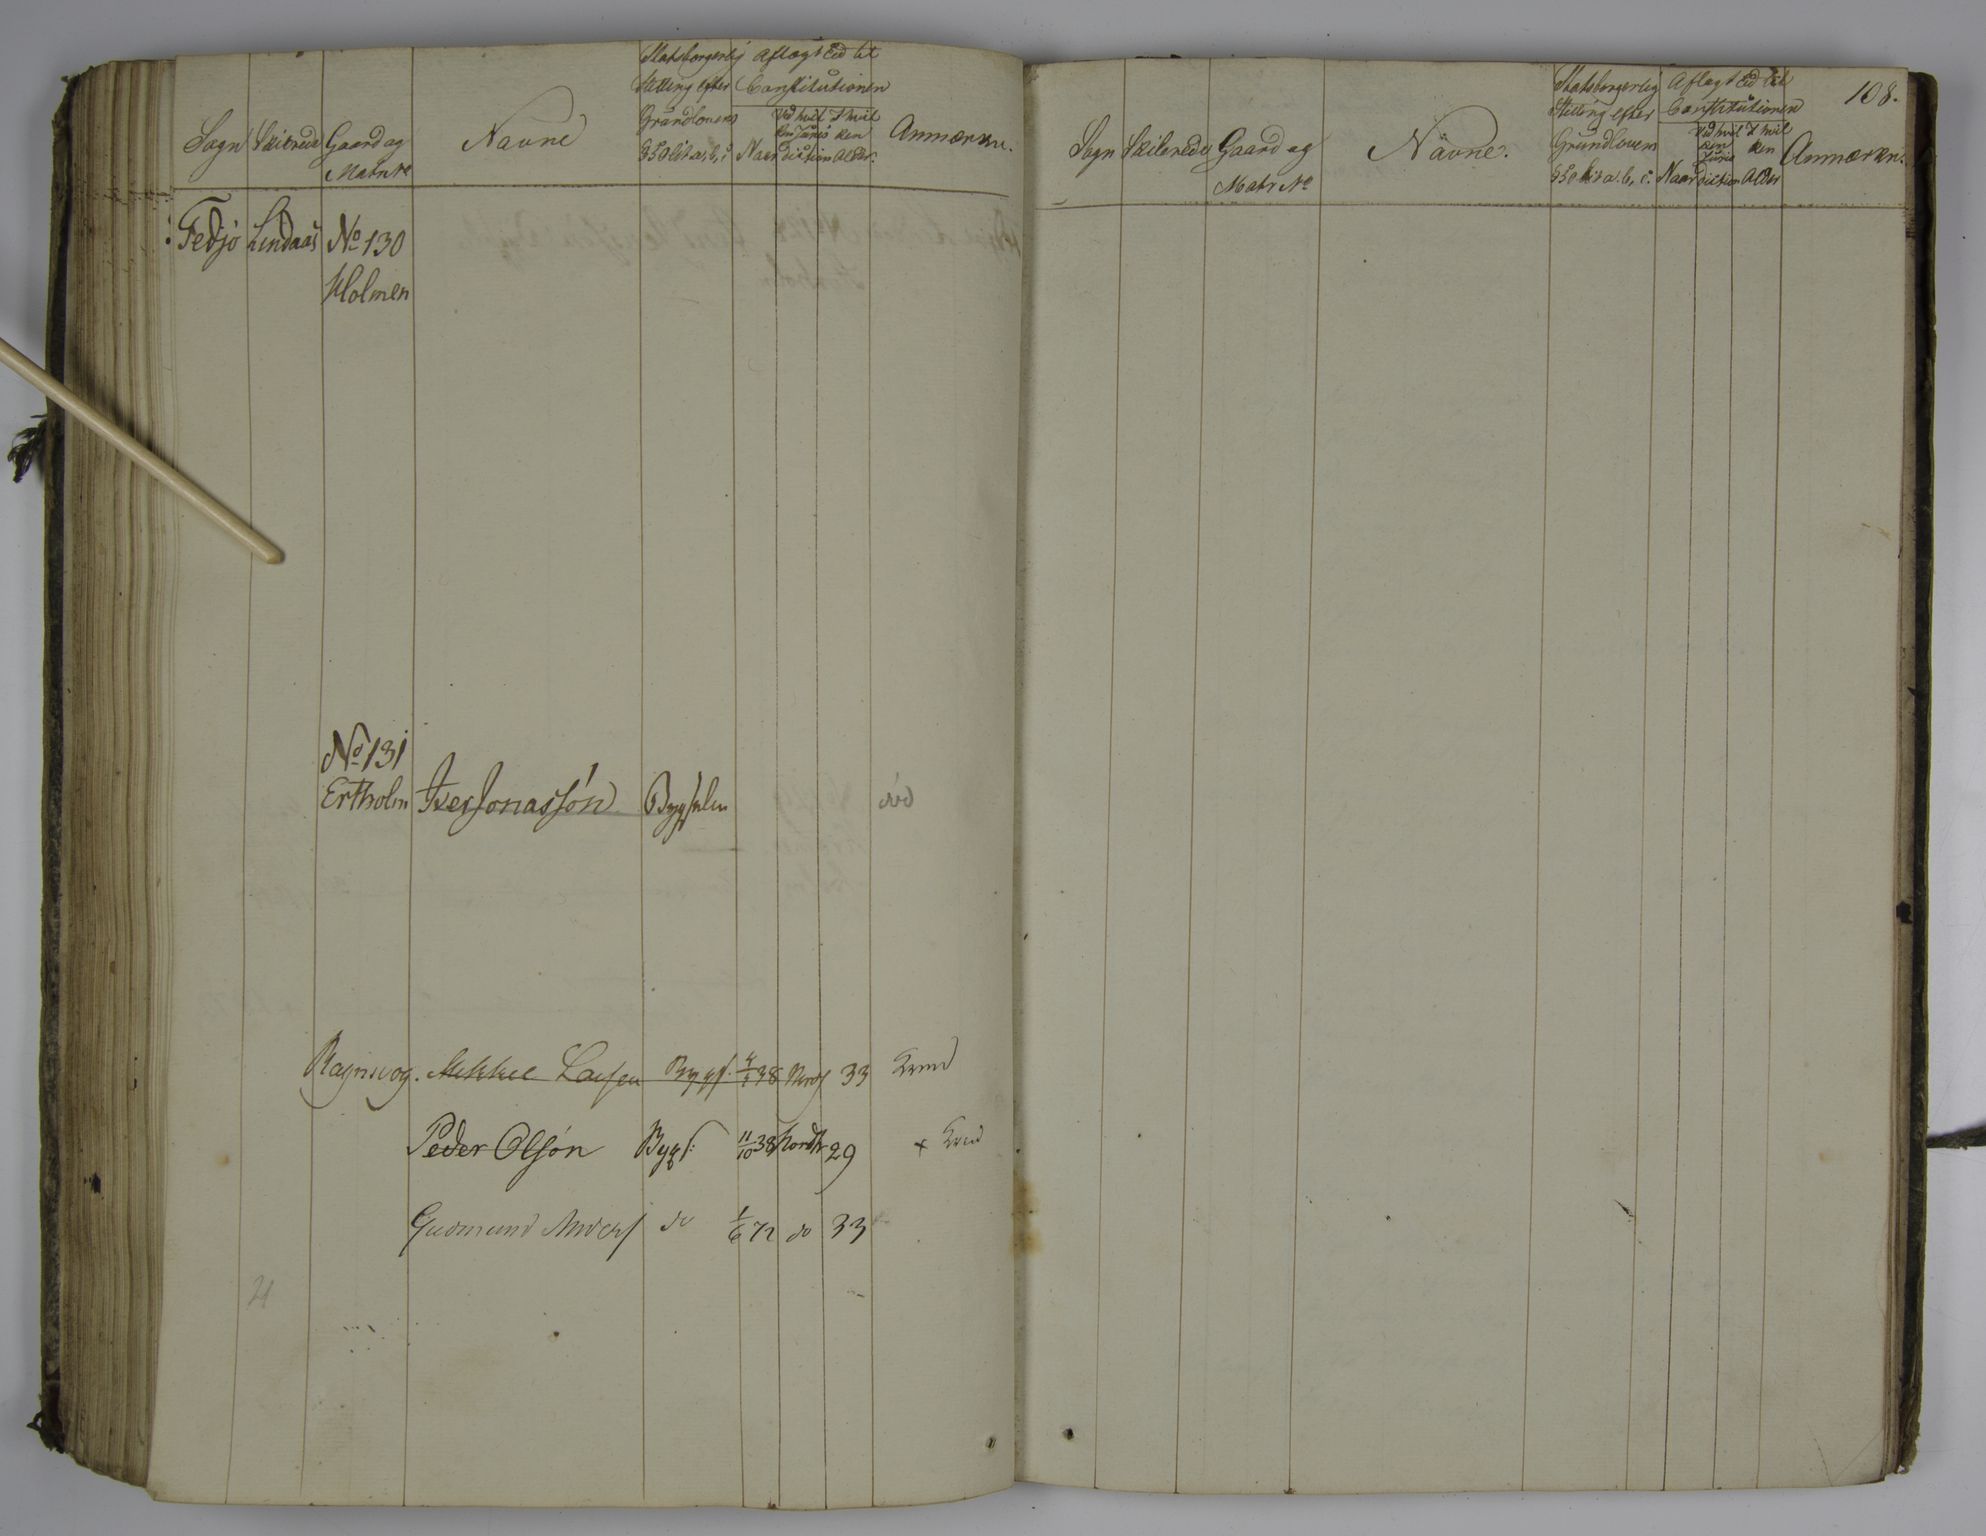 Sogn Skilrede Gaard og Matr No Navne Statsborgerlig Stilling efter Grundlovens §50 lit a, b, c. Aflagt Eed til Constitutionen Naar Ved hvilken Jurisdiction I hvilken Alder. Anmærkn.
Fedjø Lindaas No 130
Holmen
No 131
Ertholm Iver Jonassøn Bygselm død
Mikkel Bygs. 38 33
Peder Olsøn Bygs: 11/10 38 Nordh 29 +
Gudmund Anders do 1/6 72 do 33
21
108.
Sogn Skilrede Gaard og Matr No Navne. Statsborgerlig Stilling efter Grundloven §50 lit a. b, c. Aflagt Eed til Constitutionen Naar Ved hvilken Jurisdiction I hvilken Alder Anmærkn.